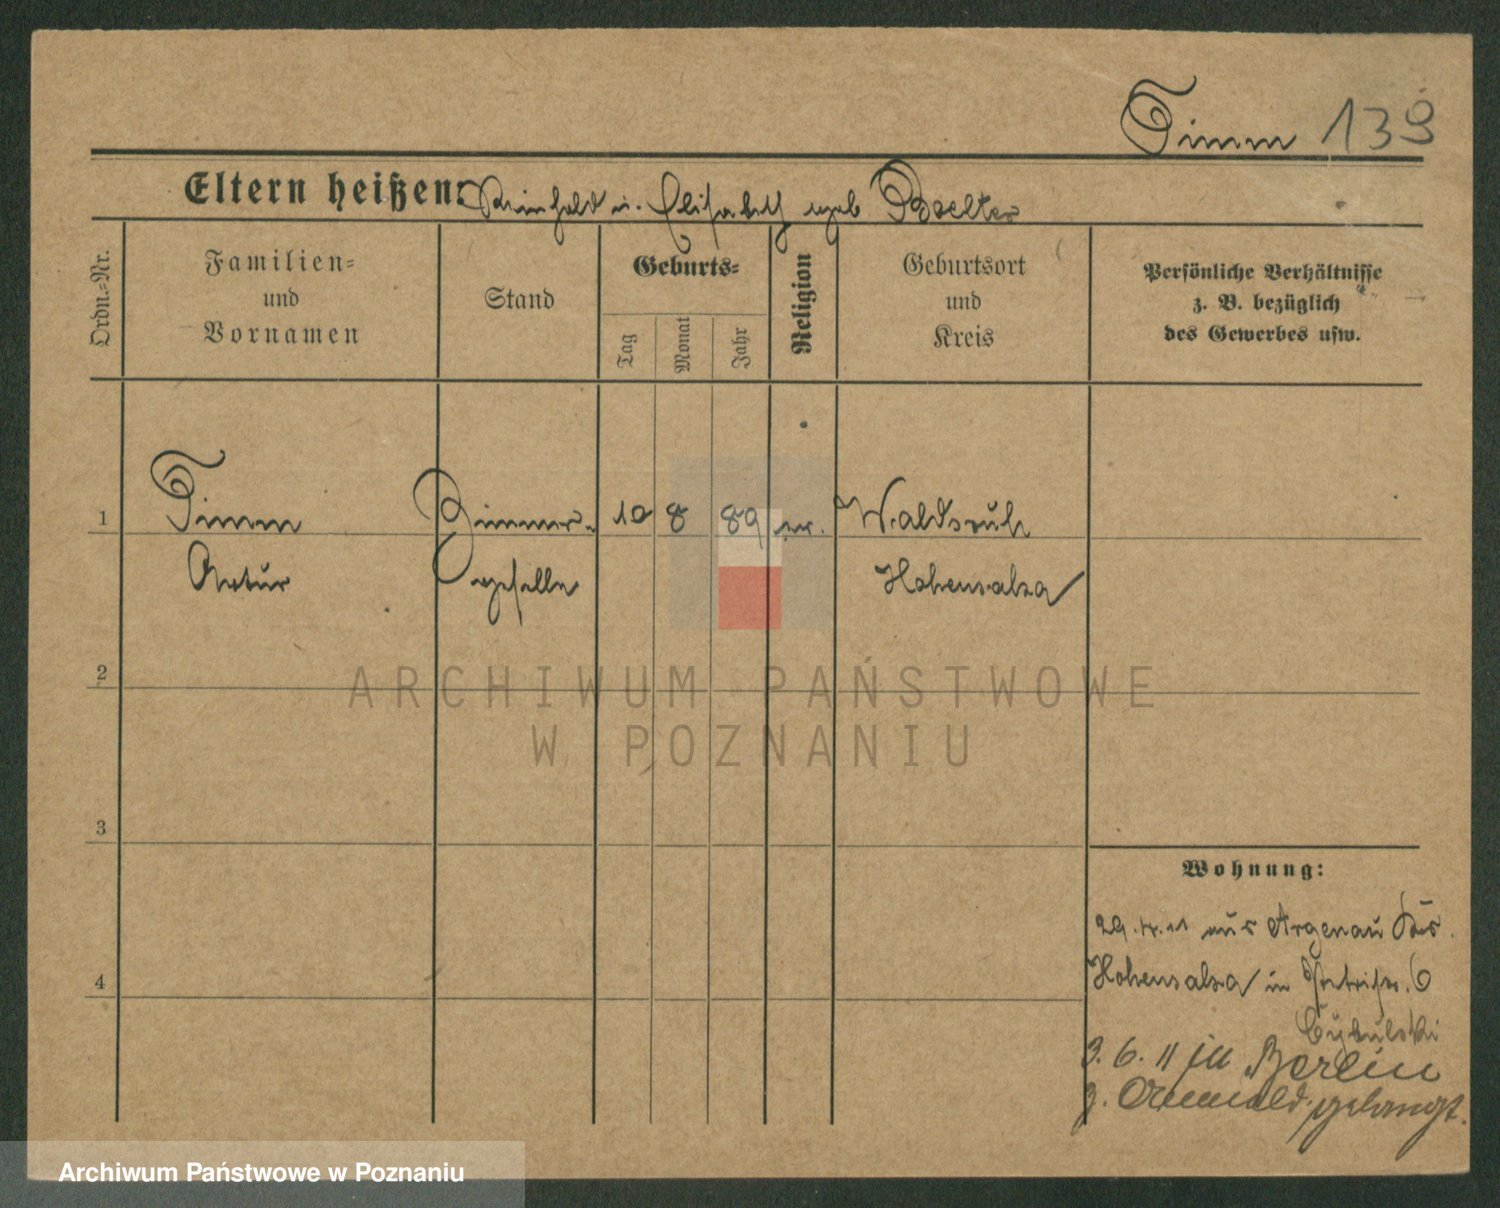 Timm 139
Eltern heißen: Reinhold u. Elisabeth geb Boelter
Ordn.-Nr.
Familien-
und
Vornamen
Stand
Geburts-
Tag
Monat
Jahr
Religion
Geburtsort
und
Kreis
Persönliche Verhältnisse
z. B. bezüglich
des Gewerbes usw.
1
Timm
Artur
Zimmer-
geselle
10
8
89
ev.
Waldsruh
Hohensalza
2
3
4
Wohnung:
29. 4. 11 aus Argenau Krs.
Hohensalza in Petristr. 6
Cybulski
3. 6. 11 zu Berlin
z. Anmeld. gelangt.
ARCHIWUM PAŃSTWOWE
W POZNANIU
Archiwum Państwowe w Poznaniu